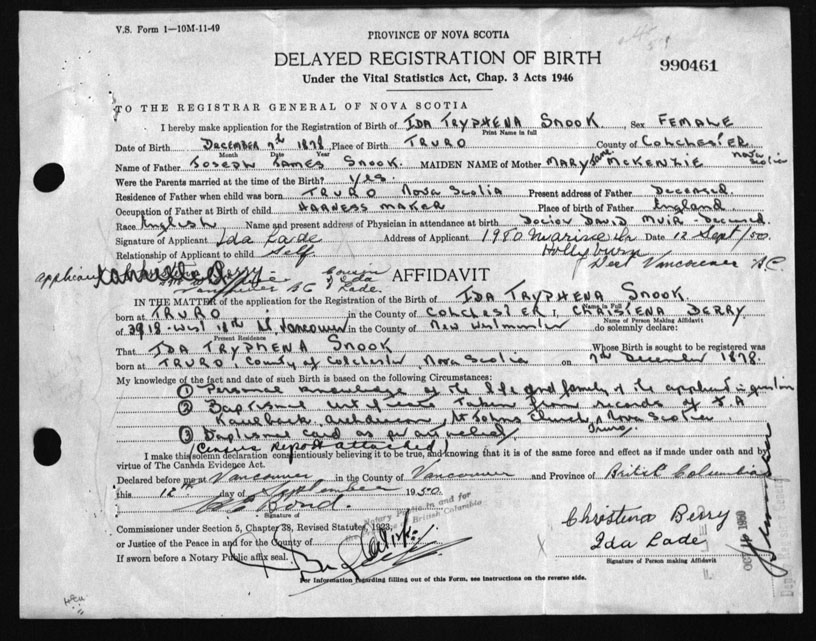 V.S. Form 1—10M-11-49
PROVINCE OF NOVA SCOTIA
DELAYED REGISTRATION OF BIRTH
990461
Under the Vital Statistics Act, Chap. 3 Acts 1946
TO THE REGISTRAR GENERAL OF NOVA SCOTIA
I hereby make application for the Registration of Birth of IDA TRYPHENA SNOOK, Sex FEMALE
Print Name in full
Date of Birth DECEMBER 7th 1878, Place of Birth TRURO County of COLCHESTER
Month Date Year
Name of Father JOSEPH JAMES SNOOK. MAIDEN NAME of Mother MARY Jane MCKENZIE Nova Scotia
Were the Parents married at the time of the Birth? Yes.
Residence of Father when child was born TRURO Nova Scotia Present address of Father Deceased.
Occupation of Father at Birth of child HARNESS MAKER Place of Birth of father England.
Race English Name and present address of Physician in attendance at birth Doctor David Muir - Deceased.
Signature of Applicant Ida Lade Address of Applicant 1980 Marine Dr Date 12 Sept/50.
Relationship of Applicant to child Self. Hollyburn
West Vancouver B.C.
cousin
B C Ida Lade.
AFFIDAVIT
IN THE MATTER of the application for the Registration of Birth of IDA TRYPHENA SNOOK.
Name in Full
born at TRURO in the County of COLCHESTER I, CHRISTENA BERRY
Name of Person Making Affidavit
of 3918 West 18th St, Vancouver in the County of New Westminster do solemnly declare:
Present Residence
That IDA TRYPHENA SNOOK Whose Birth is sought to be registered was
born at TRURO, County of Colchester, Nova Scotia on 7th December 1878.
My knowledge of the fact and date of such Birth is based on the following Circumstances:
① Personal knowledge of the life and family of the applicant in question
② Baptismal certificate taken from records of J. A
Kaulbach, archdeacon, St Johns Church, Nova Scotia.
Truro.
③ Baptismal card as
(Census Report attached)
I make this solemn declaration conscientiously believing it to be true, and knowing that it is of the same force and effect as if made under oath and by
virtue of The Canada Evidence Act.
Declared before me at Vancouver in the County of Vancouver and Province of British Columbia
this 12th day of September 1950.
Bond.
Signature of
Notary Public in and for
British Columbia
Commissioner under Section 5, Chapter 38, Revised Statutes, 1923,
or Justice of the Peace in and for the County of
If sworn before a Notary Public affix seal.
Christina Berry
Ida Lade
Signature of Person making Affidavit
For Information regarding filling out of this Form, see instructions on the reverse side.